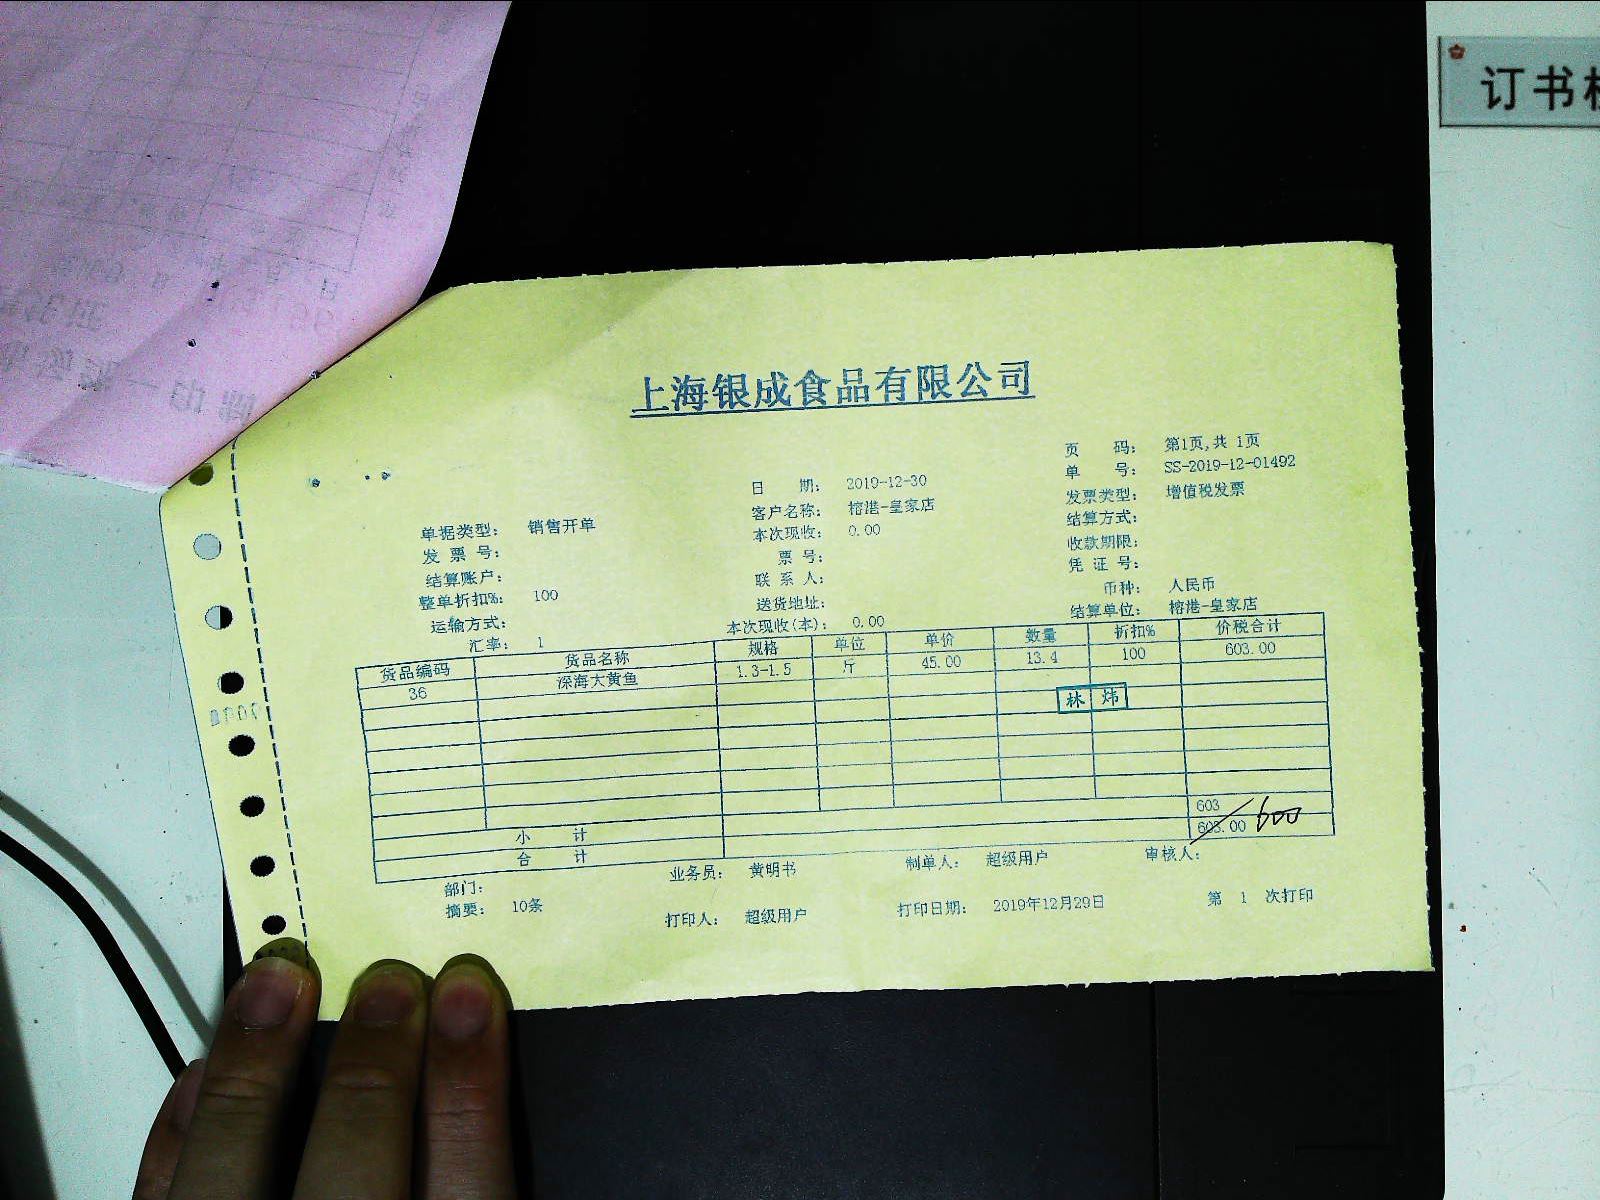 订书机
上海银成食品有限公司
页 码: 第1页,共 1页
日 期: 2019-12-30 单 号: SS-2019-12-01492
单据类型: 销售开单 客户名称: 榕港-皇家店 发票类型: 增值税发票
发 票 号: 本次现收: 0.00 结算方式:
结算账户: 票 号: 收款期限:
整单折扣%: 100 联 系 人: 凭 证 号:
运输方式: 送货地址: 币种: 人民币
汇率: 1 本次现收(本): 0.00 结算单位: 榕港-皇家店
货品编码 货品名称 规格 单位 单价 数量 折扣% 价税合计
36 深海大黄鱼 1.3-1.5 斤 45.00 13.4 100 603.00
林 炜
小 计 603
合 计 603.00 600
部门: 业务员: 黄明书 制单人: 超级用户 审核人:
摘要: 10条 打印人: 超级用户 打印日期: 2019年12月29日 第 1 次打印